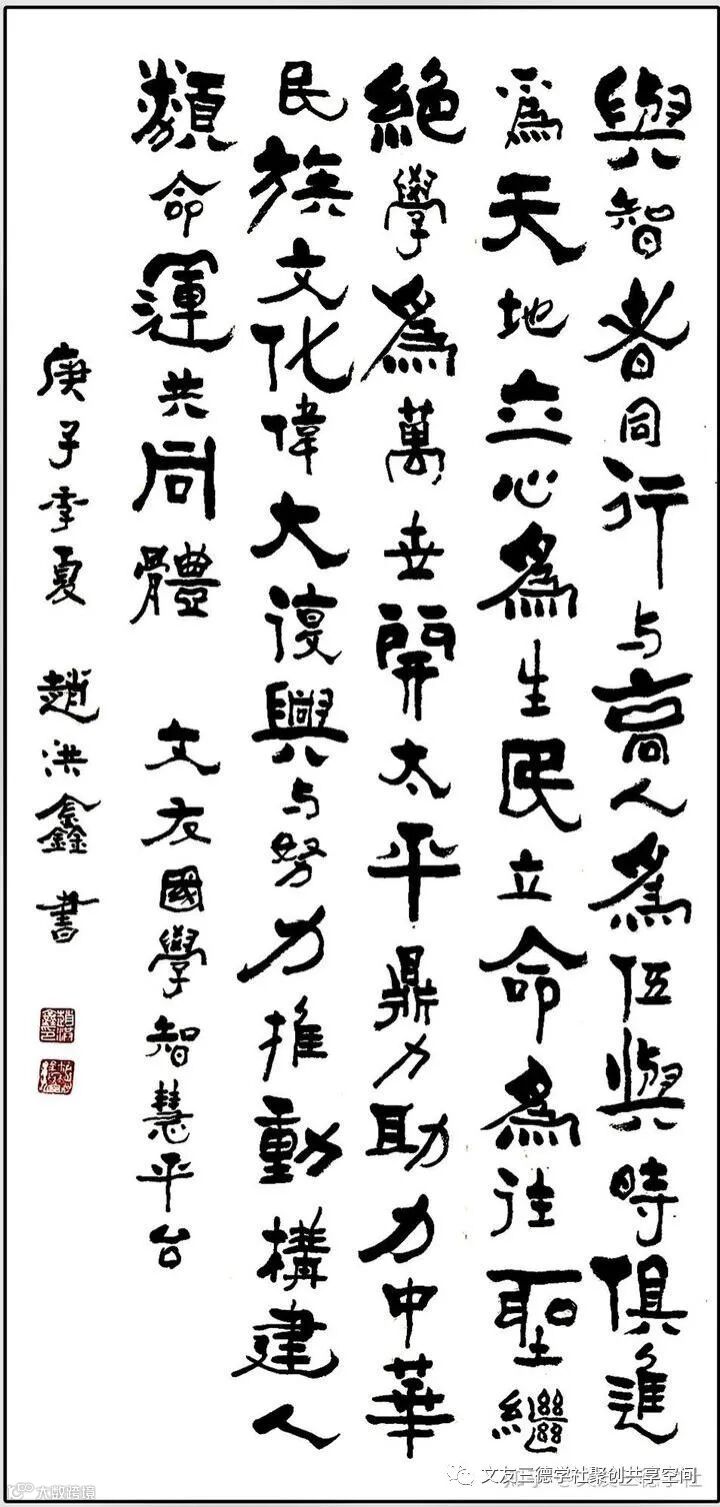 與智者同行与高人為伍與時俱進
為天地立心為生民立命為往聖繼
絕學為萬世開太平鼎力助力中華
民族文化偉大復興与努力推動構建人
類命運共同體
文友國學智慧平台
庚子季夏 趙洪鑫書
文友三德学社聚创共享空间
大数跨境